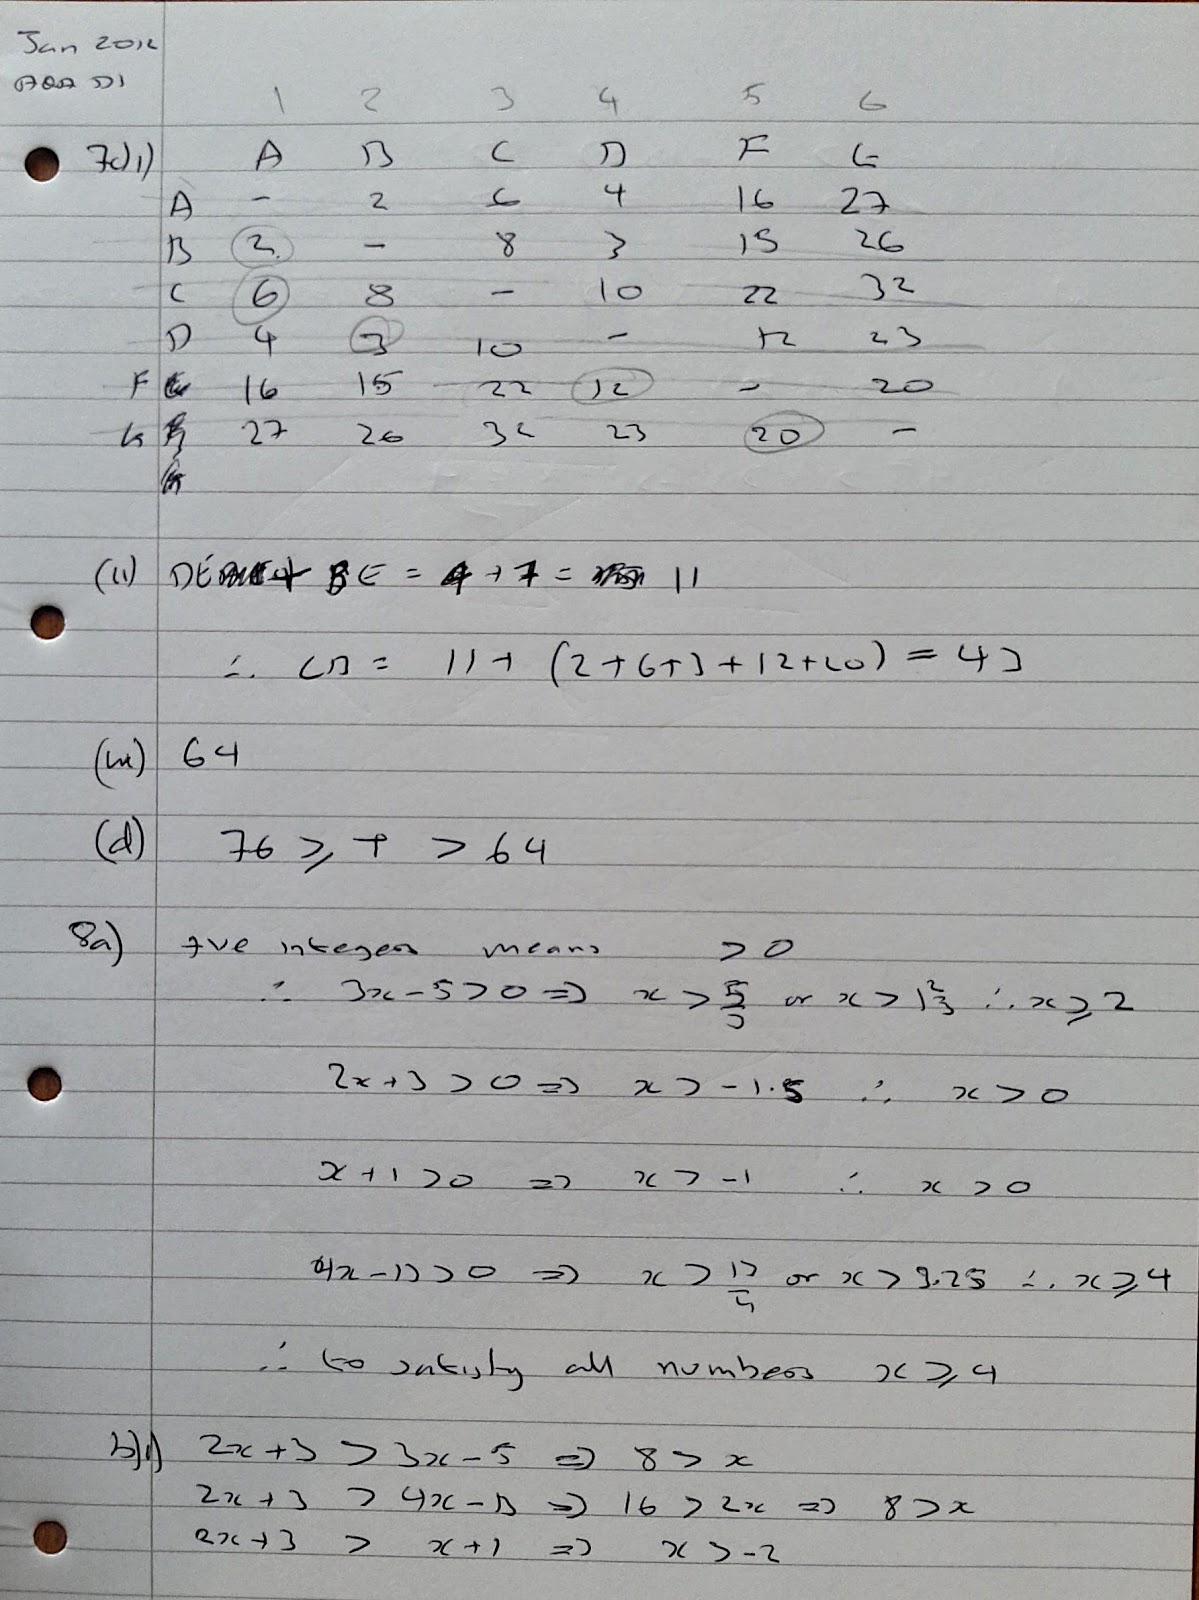 Jan 2012
AQA D1
1 2 3 4 5 6
7c)i) A B C D F G
A - 2 6 4 16 27
B 2 - 8 3 15 26
C 6 8 - 10 22 32
D 4 3 10 - 12 23
F 16 15 22 12 - 20
G 27 26 32 23 20 -
(ii) DE + BE = 4 + 7 = 11
∴ LB = 11 + (2+6+3+12+20) = 43
(iii) 64
(d) 76 ⩾ T > 64
8a) +ve integers means > 0
∴ 3x - 5 > 0 ⇒ x > 5/3 or x > 1 2/3 ∴ x ⩾ 2
2x + 3 > 0 ⇒ x > -1.5 ∴ x > 0
x + 1 > 0 ⇒ x > -1 ∴ x > 0
4x - 13 > 0 ⇒ x > 13/4 or x > 3.25 ∴ x ⩾ 4
∴ to satisfy all numbers x ⩾ 4
b)i) 2x + 3 > 3x - 5 ⇒ 8 > x
2x + 3 > 4x - 13 ⇒ 16 > 2x ⇒ 8 > x
2x + 3 > x + 1 ⇒ x > -2